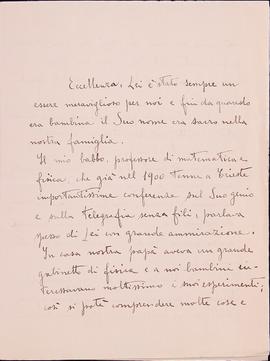 Eccellenza, Lei è stato sempre un
essere meraviglioso per noi e fin da quando
ero bambina il Suo nome era sacro nella
nostra famiglia.
Il mio babbo, professore di matematica e
fisica, che già nel 1900 tenne a Trieste
importantissime conferenze sul Suo genio
e sulla telegrafia senza fili, parlava
spesso di Lei con grande ammirazione.
In casa nostra papà aveva un grande
gabinetto di fisica e a noi bambini in-
teressavano moltissimo i suoi esperimenti;
così si potè comprendere molte cose e